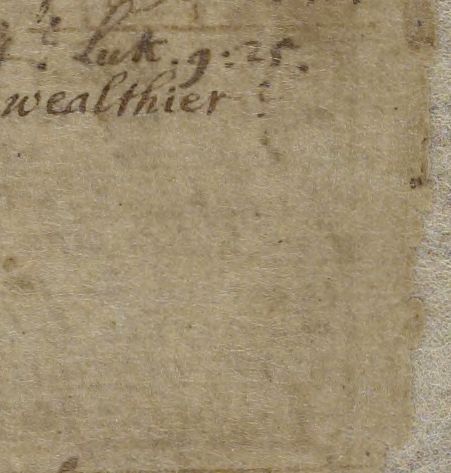 Luk. 9:25.
wealthier